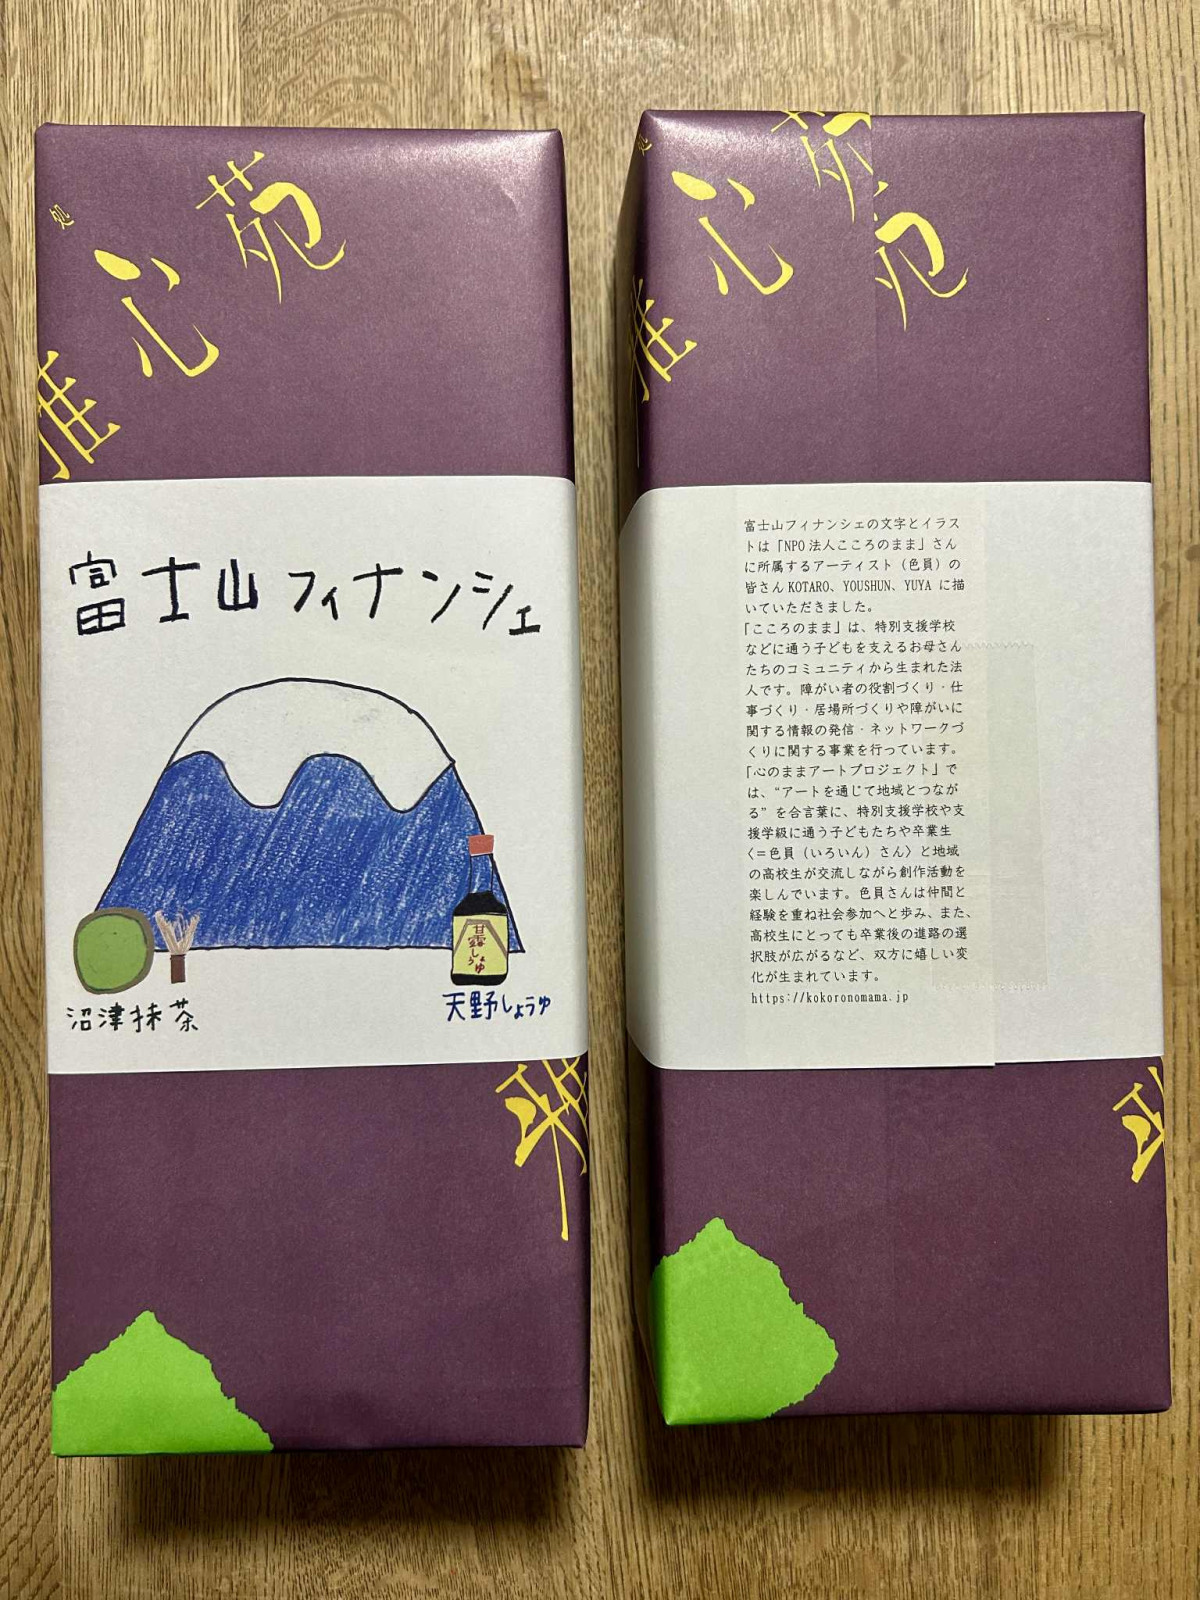 処
雅心苑
富士山フィナンシェ
甘露
しょうゆ
沼津抹茶
天野しょうゆ
雅
雅心苑
富士山フィナンシェの文字とイラス
トは「NPO法人こころのまま」さん
に所属するアーティスト（色員）の
皆さんKOTARO、YOUSHUN、YUYA に描
いていただきました。
「こころのまま」は、特別支援学校
などに通う子どもを支えるお母さん
たちのコミュニティから生まれた法
人です。障がい者の役割づくり・仕
事づくり・居場所づくりや障がいに
関する情報の発信・ネットワークづ
くりに関する事業を行っています。
「心のままアートプロジェクト」で
は、“アートを通じて地域とつなが
る”を合言葉に、特別支援学校や支
援学級に通う子どもたちや卒業生
〈=色員（いろいん）さん〉と地域
の高校生が交流しながら創作活動を
楽しんでいます。色員さんは仲間と
経験を重ね社会参加へと歩み、また、
高校生にとっても卒業後の進路の選
択肢が広がるなど、双方に嬉しい変
化が生まれています。
https://kokoronomama.jp